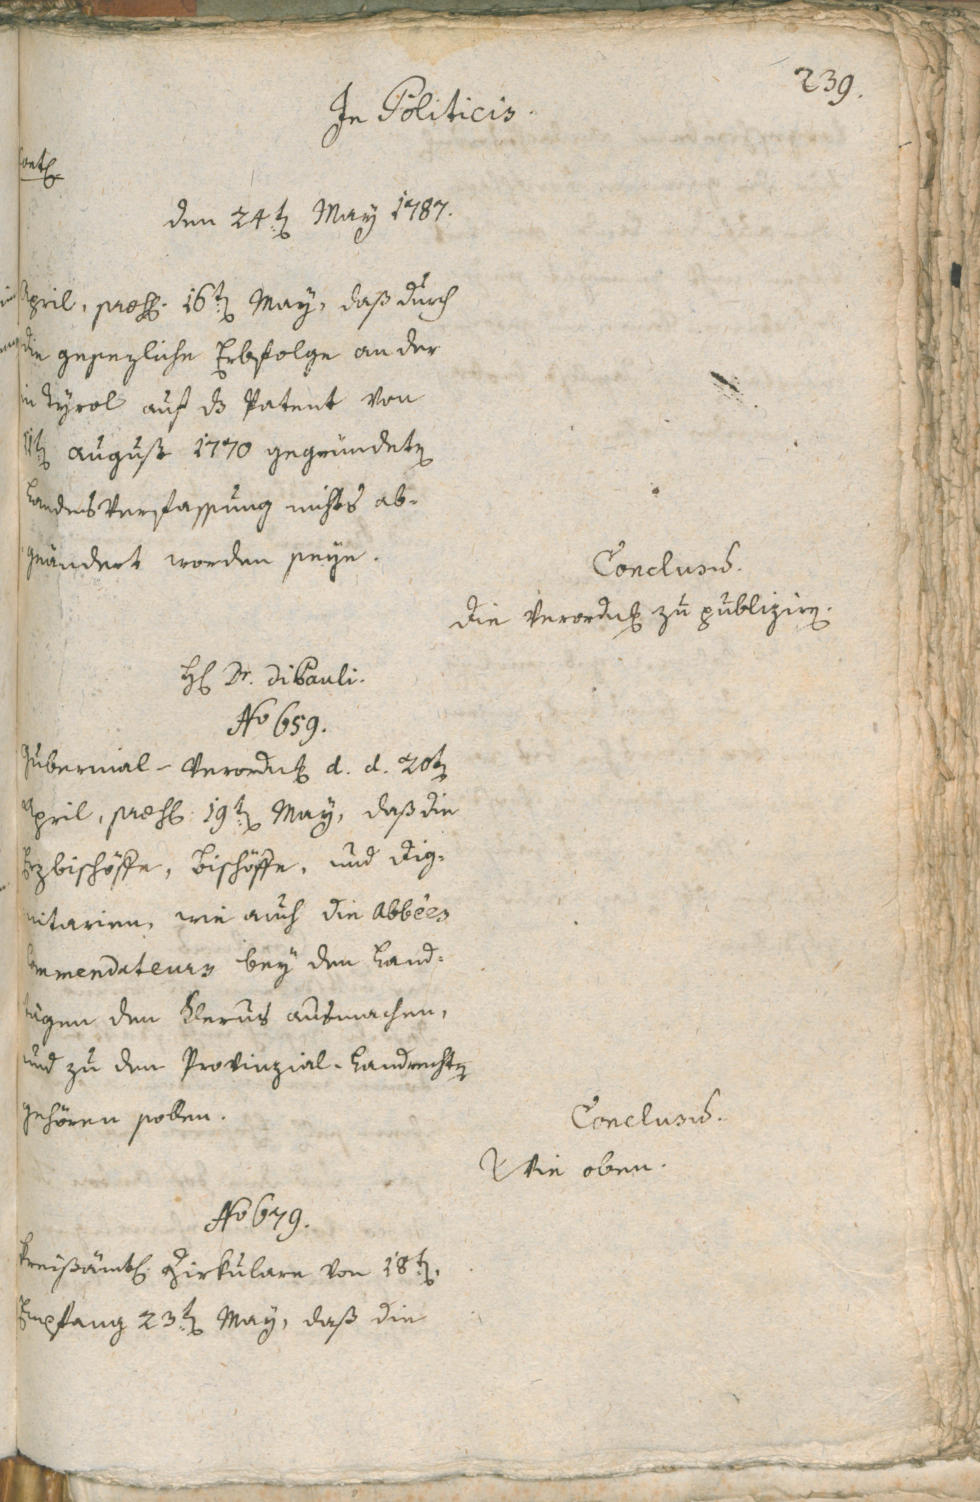 239.
In Politicis.
den 24t May 1787.
April, praes. 16t May, daß durch
die gesezliche Erbfolge an der
in Tÿrol auf ds Patent von
11t august 1770 gegründete
Landesverfassung nichts ab-
geändert worden seÿe.
Conclusū.
die Verordng zu publizirn.
H. Dr. di Pauli.
No 659.
Gubernial-Verordng d. d. 20t
April, praes. 19t May, daß die
Erzbischöffe, Bischöffe, und Dig-
nitarien, wie auch die Abbées
Commendateurs beÿ den Land-
tägen den Klerus ausmachen,
und zu den Provinzial-Landrechtn
gehören sollen.
Conclusū.
Wie oben.
No 679.
Kreisämtl. Zirkulare von 18t,
Empfang 23t May, daß die